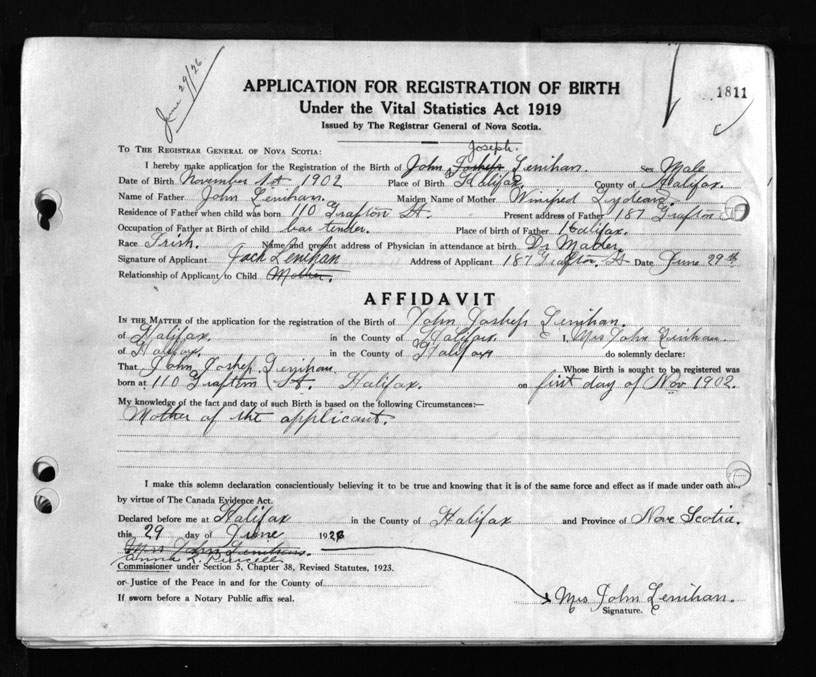 June 29/26
1811
APPLICATION FOR REGISTRATION OF BIRTH
Under the Vital Statistics Act 1919
Issued by The Registrar General of Nova Scotia.
Joseph.
TO THE REGISTRAR GENERAL OF NOVA SCOTIA:
I hereby make application for the Registration of the Birth of John Joshep Lenihan. Sex Male
Date of Birth November 1st 1902 Place of Birth Halifax. County of Halifax.
Name of Father John Lenihan. Maiden Name of Mother Winifred
Residence of Father when child was born 110 Grafton St. Present address of Father 187 Grafton St
Occupation of Father at Birth of child bar tender. Place of birth of Father Halifax.
Race Irish. Name and present address of Physician in attendance at birth Dr Mader.
Signature of Applicant Jack Lenihan Address of Applicant 187 Grafton St Date June 29th
Relationship of Applicant to Child Mother.
AFFIDAVIT
IN THE MATTER of the application for the registration of the Birth of John Joshep Lenihan.
of Halifax. in the County of Halifax. I, Mrs John Lenihan
of Halifax. in the County of Halifax do solemnly declare:
That John Joshep Lenihan. Whose Birth is sought to be registered was
born at 110 Grafton St. Halifax. on first day of Nov 1902.
My knowledge of the fact and date of such Birth is based on the following Circumstances:—
Mother of the applicant.
I make this solemn declaration conscientiously believing it to be true and knowing that it is of the same force and effect as if made under oath and
by virtue of The Canada Evidence Act.
Declared before me at Halifax in the County of Halifax and Province of Nova Scotia.
this 29 day of June 1926
Mrs John Lenihan.
Anna L. Purcell
Commissioner under Section 5, Chapter 38, Revised Statutes, 1923.
or Justice of the Peace in and for the County of
If sworn before a Notary Public affix seal. Mrs John Lenihan.
Signature.